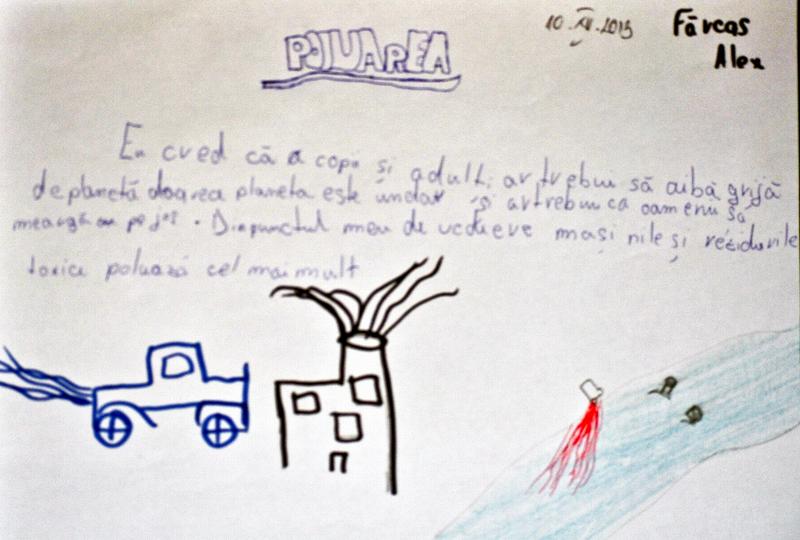 10.XII.2013
Fărcas
Alex
POLUAREA
Eu cred că a copii și adulti ar trebui să aibă grijă
de planetă doarea planeta este și ar trebui ca oamenii să
meargă pe jos. Din punctul meu de vedere mași nile și rezidurile
toxice poluază cel mai mult